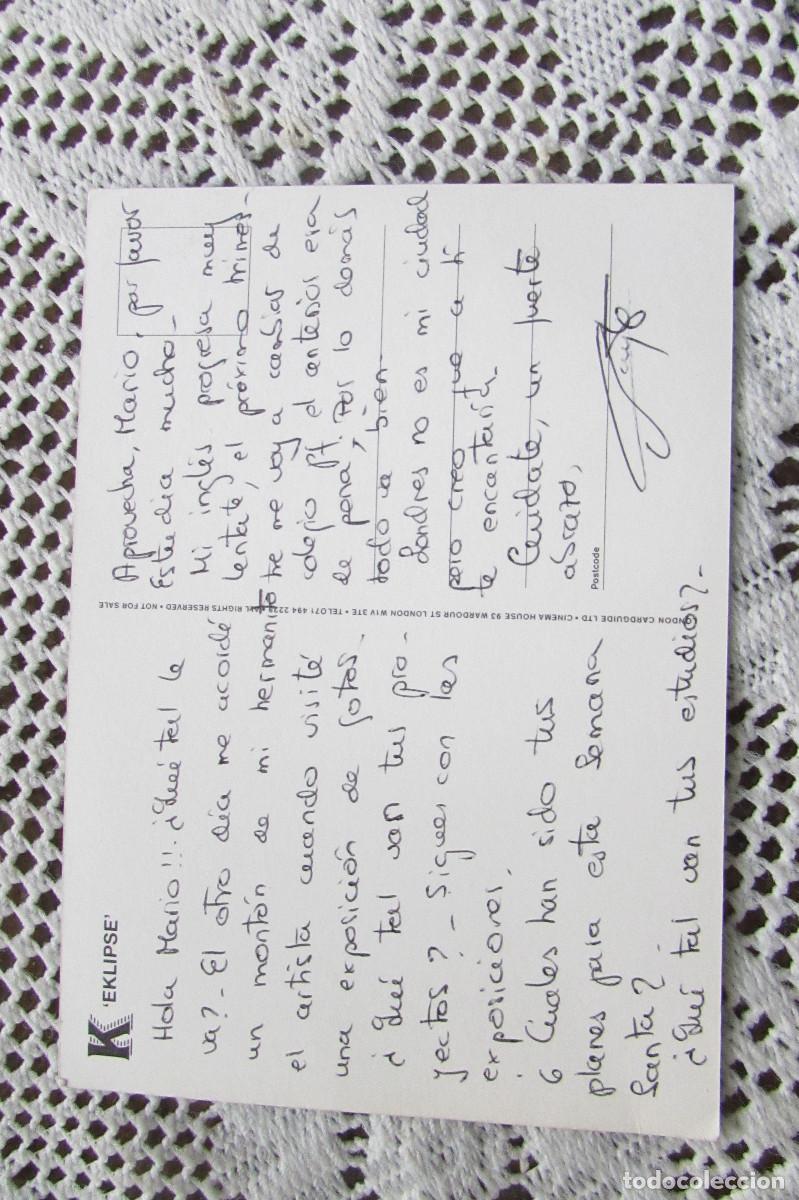 K 'EKLIPSE'
Hola Mario!! ¿Qué tal te
va?- El otro día me acordé
un montón de mi hermanito
el artista cuando visité
una exposición de fotos.
¿Qué tal van tus pro-
yectos? - Sigues con las
exposiciones.
¿Cuáles han sido tus
planes para esta Semana
Santa?
¿Qué tal van tus estudios?-
LONDON CARDGUIDE LTD • CINEMA HOUSE 93 WARDOUR ST LONDON W1V 3TE • TEL 071 494 2229 ALL RIGHTS RESERVED • NOT FOR SALE
Aprovecha, Mario, por favor
Estudia mucho-
Mi inglés progresa muy
lentate, el próximo trimes-
tre me voy a cambiar de
colegio pq. el anterior era
de pena, Por lo demás
todo va bien-
Londres no es mi ciudad
pero creo que a ti
te encantaría.
Cuidate, un fuerte
abrazo,
Postcode
todocoleccion